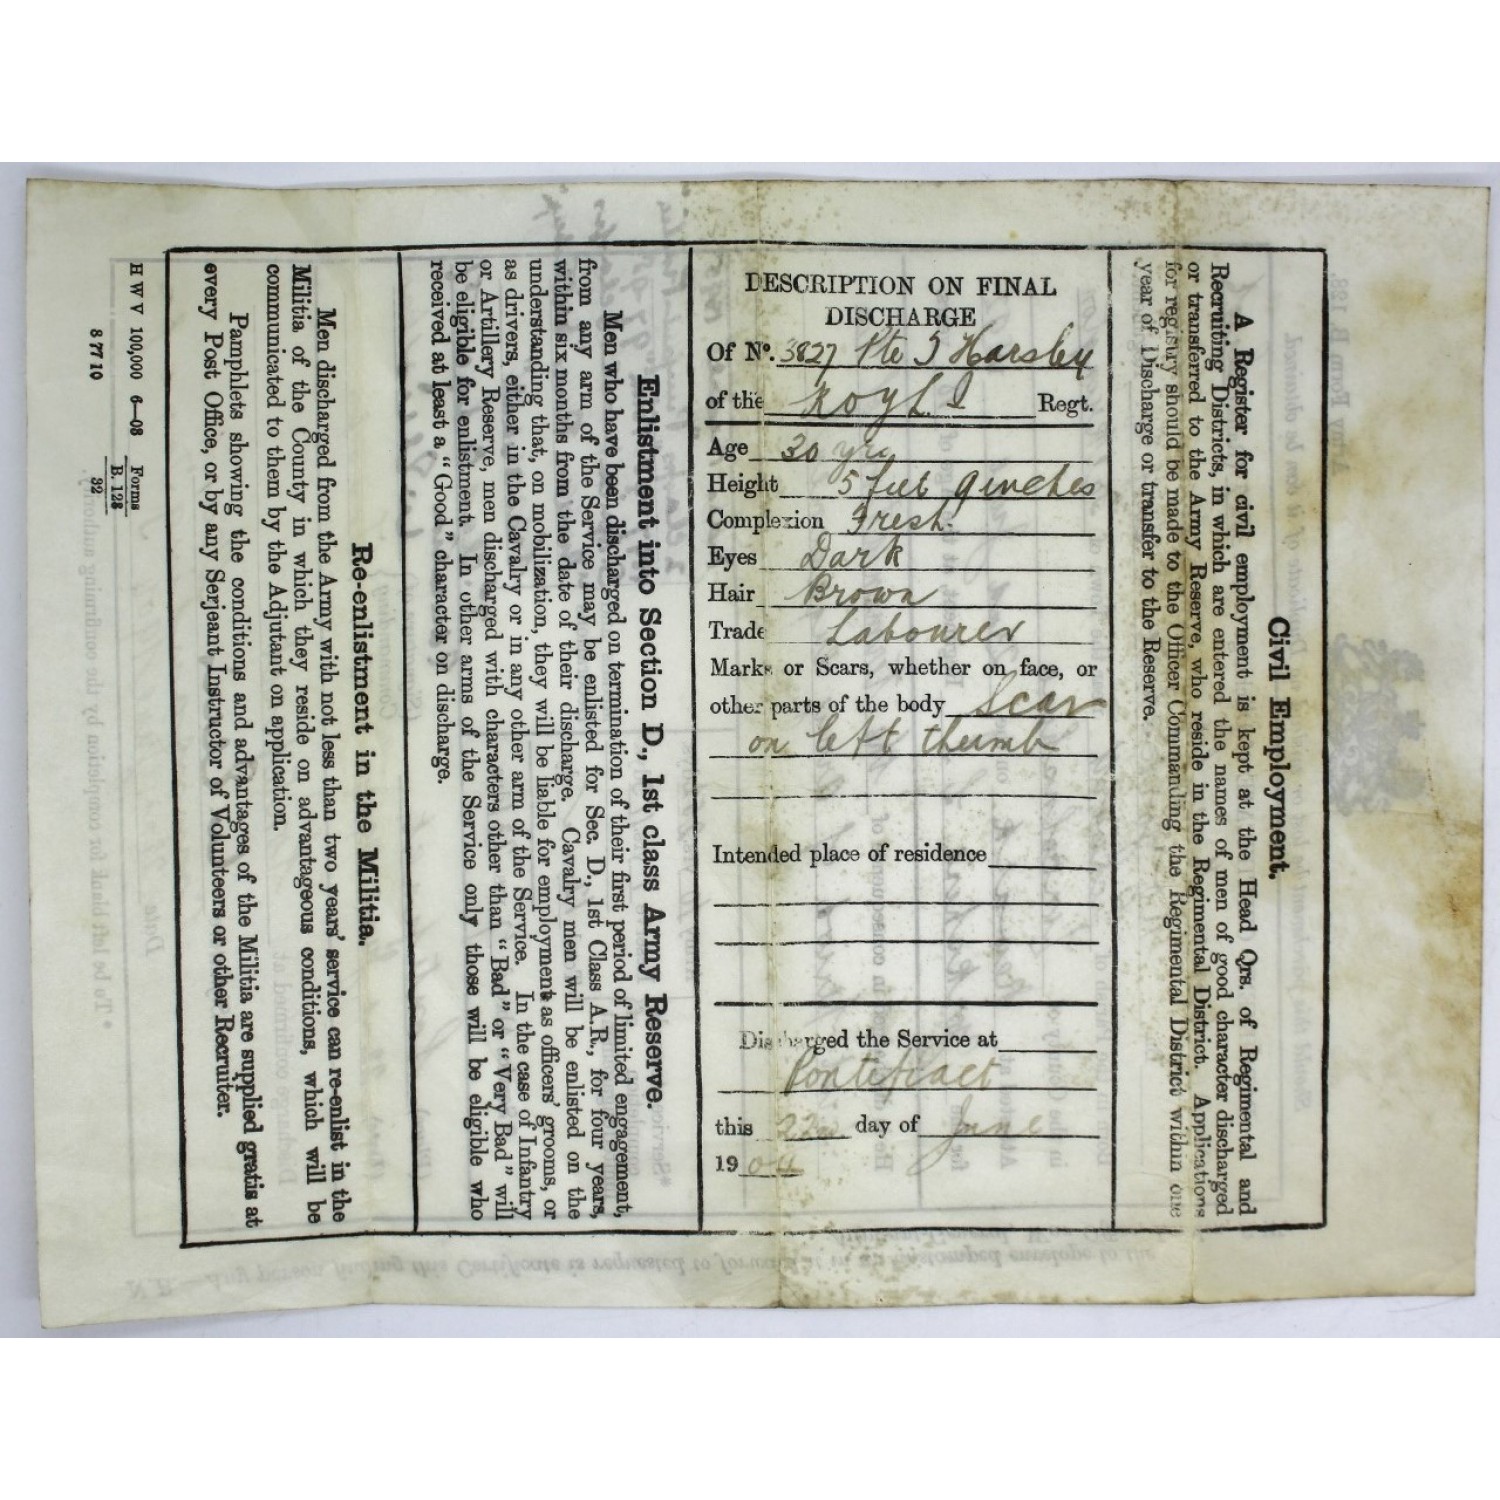 DESCRIPTION ON FINAL
DISCHARGE
Of No. 3827 Pte J Harsley
of the KOYL.I Regt.
Age 30 yrs
Height 5 feet 9 inches
Complexion Fresh.
Eyes Dark
Hair Brown
Trade Labourer
Marks or Scars, whether on face, or
other parts of the body Scar
on left thumb
Intended place of residence
Discharged the Service at
Pontefract
this 22nd day of June
19 04
Civil Employment.
A Register for civil employment is kept at the Head Qrs. of Regimental and
Recruiting Districts, in which are entered the names of men of good character discharged
or transferred to the Army Reserve, who reside in the Regimental District. Applications
for registry should be made to the Officer Commanding the Regimental District within one
year of Discharge or transfer to the Reserve.
Enlistment into Section D., 1st class Army Reserve.
Men who have been discharged on termination of their first period of limited engagement,
from any arm of the Service may be enlisted for Sec. D., 1st Class A.R., for four years,
within six months from the date of their discharge. Cavalry men will be enlisted on the
understanding that, on mobilization, they will be liable for employment as officers' grooms, or
as drivers, either in the Cavalry or in any other arm of the Service. In the case of Infantry
or Artillery Reserve, men discharged with characters other than "Bad" or "Very Bad" will
be eligible for enlistment. In other arms of the Service only those will be eligible who
received at least a "Good" character on discharge.
Re-enlistment in the Militia.
Men discharged from the Army with not less than two years' service can re-enlist in the
Militia of the County in which they reside on advantageous conditions, which will be
communicated to them by the Adjutant on application.
Pamphlets showing the conditions and advantages of the Militia are supplied gratis at
every Post Office, or by any Serjeant Instructor of Volunteers or other Recruiter.
H W V 100,000 6—03 Forms
B. 128
32
8 77 10